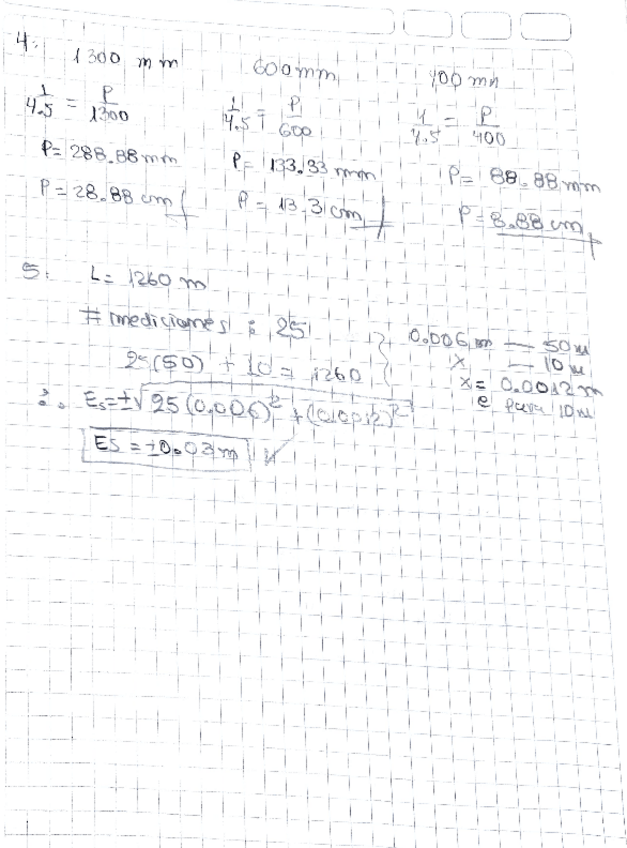 4. 1300 mm 600mm 400 mm
1/4.5 = P/1300 1/4.5 = P/600 1/4.5 = P/400
P= 288.88mm P= 133.33 mm P= 88.88mm
P= 28.88 cm P= 13.3 cm P= 8.88 cm
5. L= 1260 m
# mediciones : 25
25(50) + 10 = 1260
0.006 m — 50m
x — 10m
x = 0.0012 m
e para 10m
∴ Es=±√25(0.006)²+(0.0012)²
Es = ±0.03m